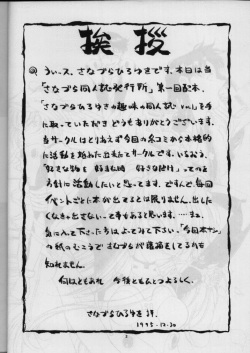 挨拶
◎うぃーっス、さなづらひろゆきです。本日は当
「さなづら同人誌発行所」第一回配本、
「さなづらひろゆきの趣味の同人誌 Vol.1」を手
に取っていただきどうもありがとうございます。
当サークルはとりあえず今回の冬コミから本格的
に活動を始めた出来たてサークルです。いちおう、
「好きな物を 好きな時 好きなだけ」っての
を方針に活動したいと思ってます。ですんで、毎回
イベントごとに本が出てるとは限りません。出した
くなきゃ出さないって事もあると思います。…まぁ、
気に入って下さった方は、よってみて下さい。「今回本ナシ」
の紙のむこうでさなづらが
知れません。
何はともあれ 今後ともひとつよろしく。
さなづらひろゆき 拝.
1995.12.30